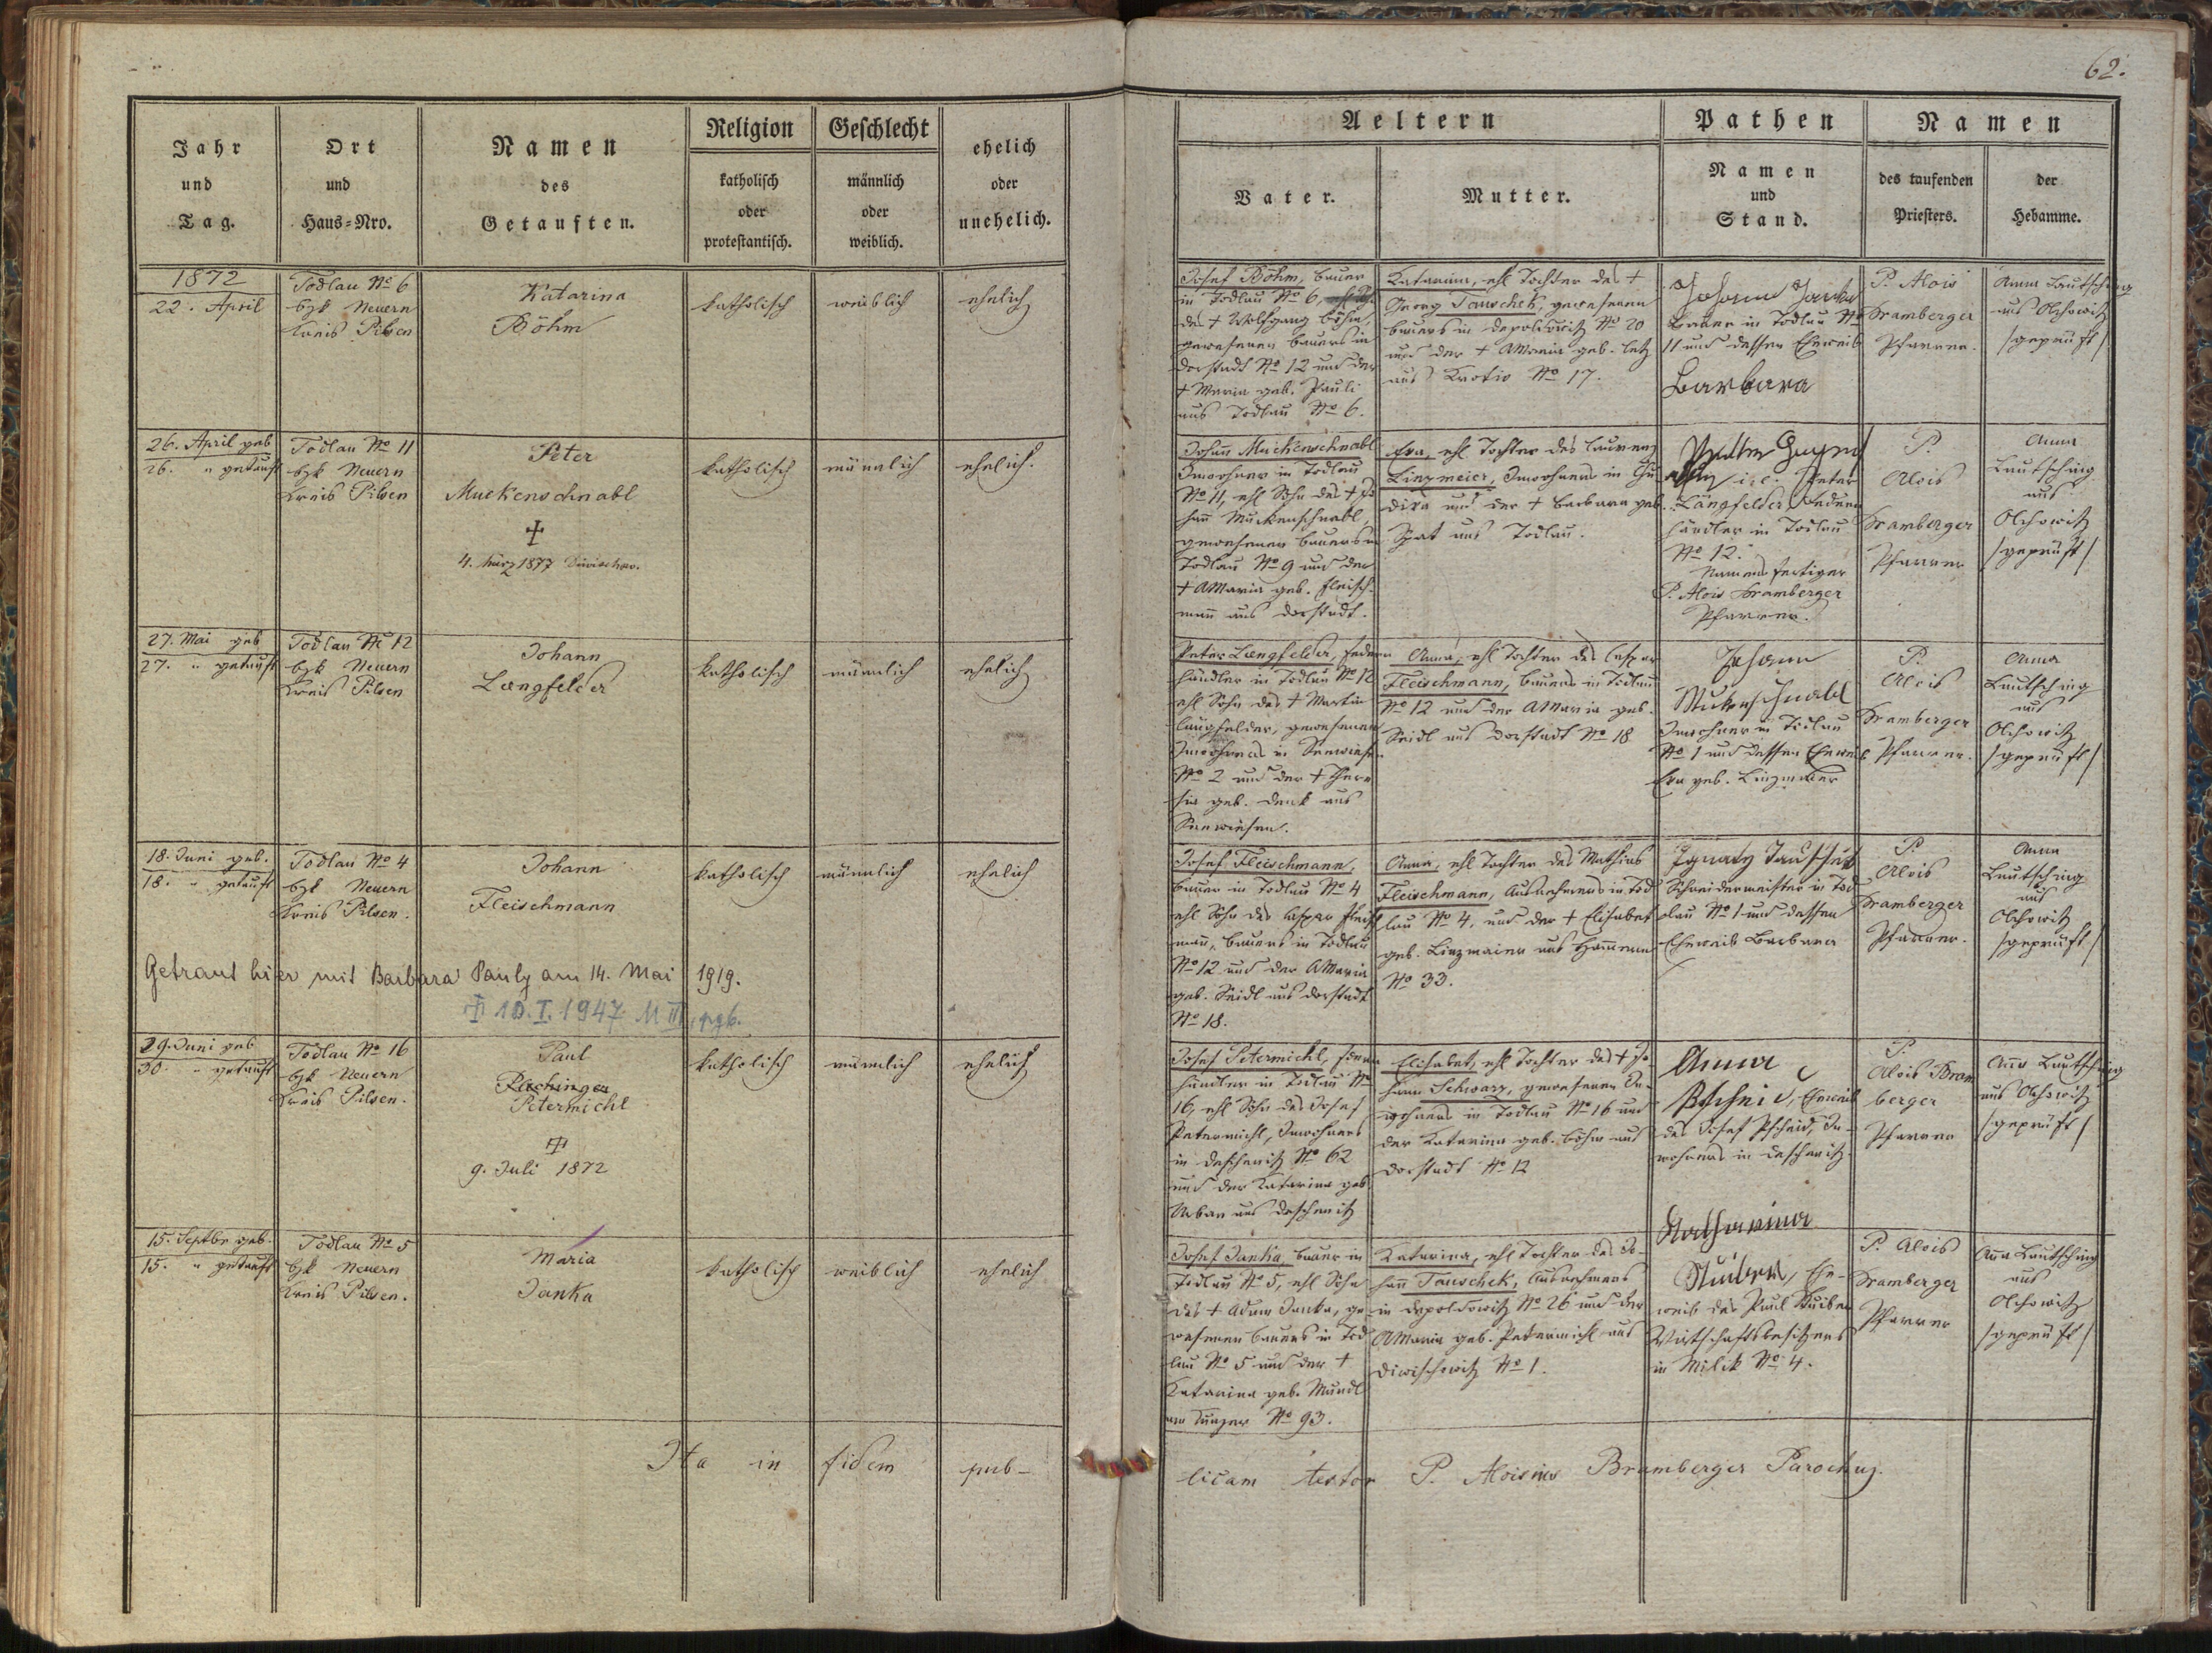 62.
Jahr
und
Tag.
Ort
und
Haus=Nro.
Namen
des
Getauften.
Religion
katholisch
oder
protestantisch.
Geschlecht
männlich
oder
weiblich.
ehelich
oder
unehelich.
Aeltern
Vater.
Mutter.
Pathen
Namen
und
Stand.
Namen
des taufenden
Priesters.
der
Hebamme.
1872
22. April
Todlau No 6
bzk Neuern
Kreis Pilsen
Katarina
Böhm
katholisch
weiblich
ehelich
Josef Böhm, Bauer
in Todlau No 6,
des + Wolfgang Böhm,
gewesenen Bauers in
Dorstadt No 12 und der
+ Maria geb. Pauli
aus Todlau No 6.
Katarina, ehl Tochter des +
Georg Tauschek, gewesenen
Bauers in Depoldowitz No 20
und der + AMaria geb.
aus Krotiv No 17.
Johann Janka
Bauer in Todlau No
11 und dessen Eheweib
Barbara
P. Alois
Bramberger
Pfarrer.
Anna Lautsching
aus Olchowitz
/geprüft/
26. April geb
26. " getauft
Todlau No 11
bzk Neuern
Kreis Pilsen
Peter
Muckenschnabl
+
4. März 1877
katholisch
männlich
ehelich.
Johann Muckenschnabl
Inwohner in Todlau
No 11, ehl Sohn des + Jo
hann Muckenschnabl,
gewesenen Bauers in
Todlau No 9 und der
+ AMaria geb. Fleisch
mann aus Dorstadt.
Eva, ehl Tochter des Laurenz
Linzmeier, Inwohners in Chu
diva und der + Barbara geb.
Spat aus Todlau.
Peter
Längfelder, Federn
händler in Todlau
No 12.
Namensfertiger
P. Alois Bramberger
Pfarrer.
P.
Alois
Bramberger
Pfarrer
Anna
Lautsching
aus
Olchowitz
/geprüft/
27. Mai geb
27. " getauft
Todlau No 12
bzk Neuern
Kreis Pilsen
Johann
Laengfelder
katholisch
männlich
ehelich
Peter Laengfelder, Federn
händler in Todlau No 12
ehl Sohn des + Martin
Längfelder, gewesenen
Inwohners in Seewiesen
No 2 und der + There
sia geb. Denk aus
Seewiesen.
Anna, ehl Tochter des Caspar
Fleischmann, Bauers in Todlau
No 12 und der AMaria geb.
Seidl aus Dorstadt No 18
Johann
Mukenschnabl
Inwohner in Todlau
No 1 und dessen Eheweib
Eva geb. Linzmeier
P.
Alois
Bramberger
Pfarrer.
Anna
Lautsching
aus
Olchowitz
/geprüft/
18. Juni geb.
18. " getauft
Todlau No 4
bzk Neuern
Kreis Pilsen.
Johann
Fleischmann
katholisch
männlich
ehelich
Getraut hier mit Barbara Pauly am 14. Mai 1919.
+ 10.I.1947
Josef Fleischmann,
Bauer in Todlau No 4
ehl Sohn des Caspar Fleisch
mann, Bauers in Todlau
No 12 und der AMaria
geb. Seidl aus Dorstadt
No 18.
Anna, ehl Tochter des Mathias
Fleischmann, Ausnehmers in Tod
lau No 4, und der + Elisabet
geb. Linzmaier aus Hammern
No 33.
Ignatz Tauschek
Schneidermeister in Tod
lau No 1 und dessen
Eheweib Barbara
P.
Alois
Bramberger
Pfarrer.
Anna
Lautsching
aus
Olchowitz
/geprüft/
29. Juni geb
30. " getauft
Todlau No 16
bzk Neuern
Kreis Pilsen.
Paul
Petermichl
+
9. Juli 1872
katholisch
männlich
ehelich
Josef Petermichl,
händler in Todlau No
16, ehl Sohn des Josef
Petermichl, Inwohners
in Deschenitz No 62
und der Katarina geb.
Urban aus Deschenitz
Elisabet, ehl Tochter des + Jo
hann Schwarz, gewesenen In-
wohners in Todlau No 16 und
der Katarina geb. Böhm aus
Dorstadt No 12
Anna
Pscheid, Eheweib
des Josef Pscheid, In-
wohners in Deschenitz.
P.
Alois Bram
berger
Pfarrer
Anna Lautsching
aus Olchowitz
/geprüft/
15. Septbr geb.
15. " getauft
Todlau No 5
bzk Neuern
Kreis Pilsen.
Maria
Janka
katholisch
weiblich
ehelich
Josef Janka, Bauer in
Todlau No 5, ehl Sohn
des + Adam Janka, ge
wesenen Bauers in Tod
lau No 5 und der +
Katarina geb. Mundl
No 93.
Katarina, ehl Tochter des Jo-
hann Tauschek, Ausnehmers
in Depoldowitz No 26 und der
AMaria geb. Petermichl aus
Diwischowitz No 1.
Katharina
Stuiber, Ehe-
weib des Paul Stuiber
Wirtschaftsbesitzers
in Milik No 4.
P. Alois
Bramberger
Pfarrer
Anna Lautsching
aus
Olchowitz
/geprüft/
Ita in fidem pub-
licam testor P. Aloisius Bramberger Parochus.